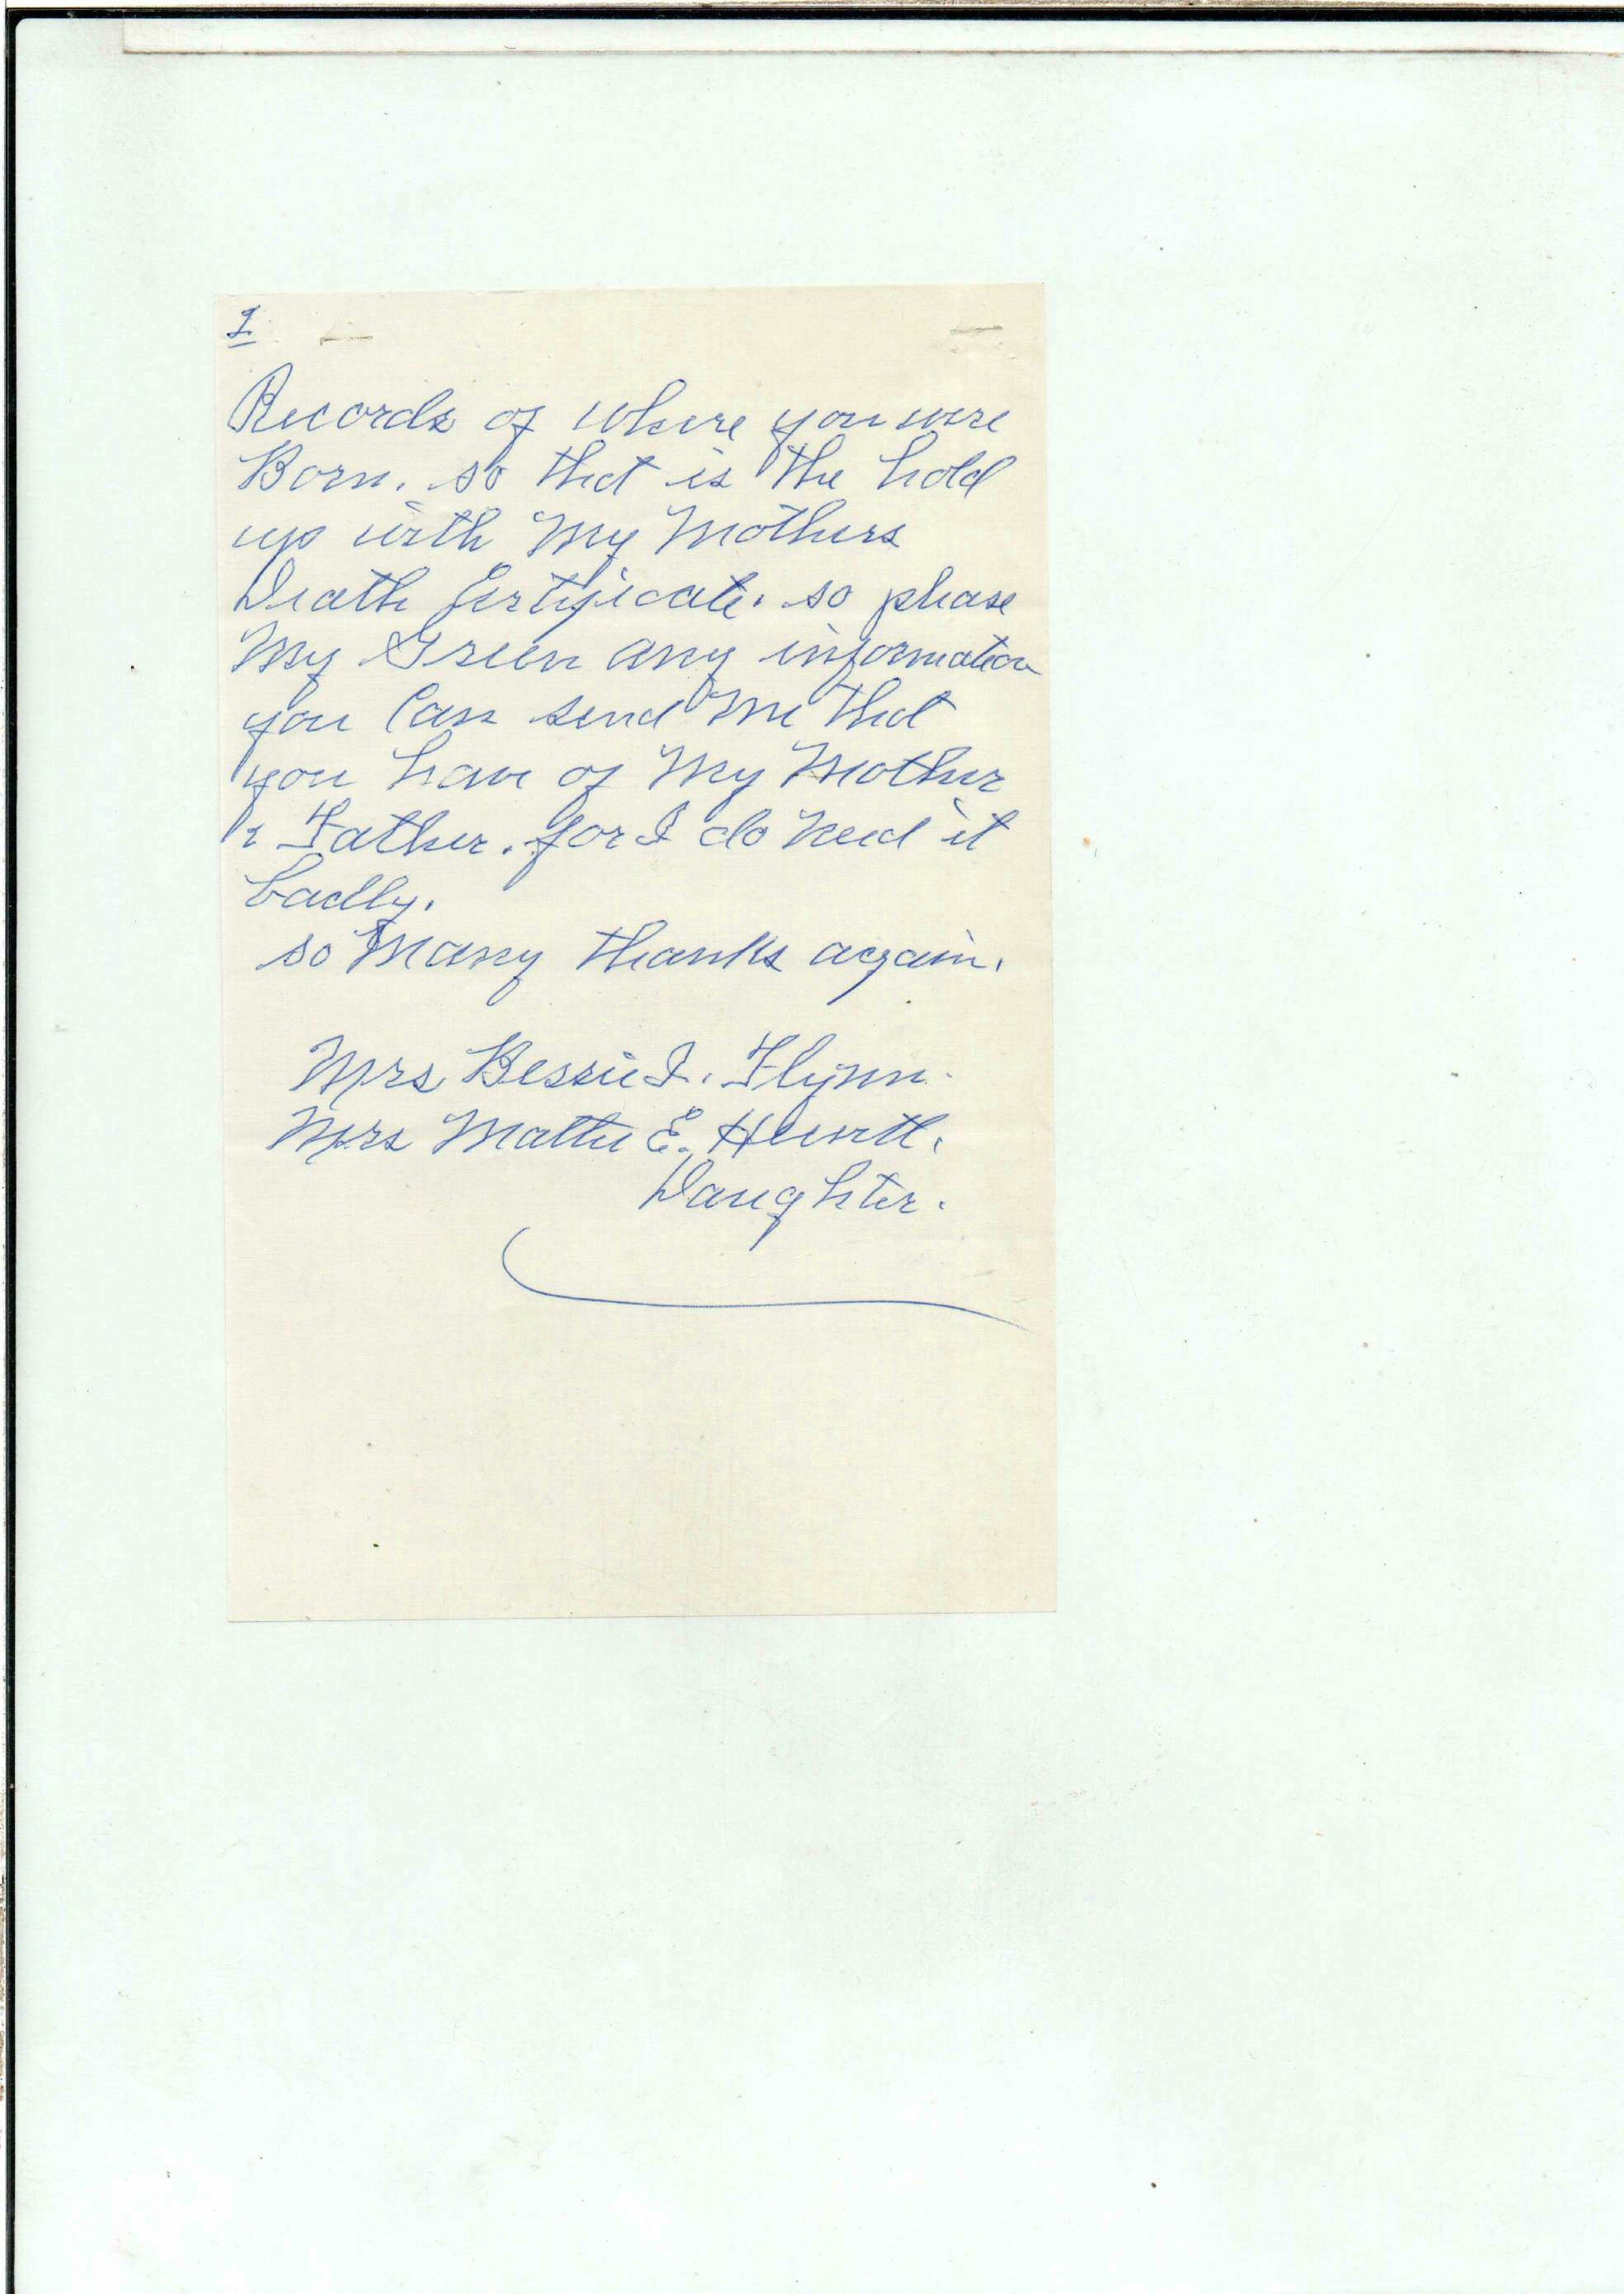 2
Records of where you were
Born. so that is the hold
up with My Mothers
Death Certificate. so please
My Green any information
you Can send Me that
you have of My Mother
& Father. for I do Need it
badly.
so Many thanks again.
Mrs Bessie I. Flynn.
Mrs Mattie E. Hewitt.
Daughter.